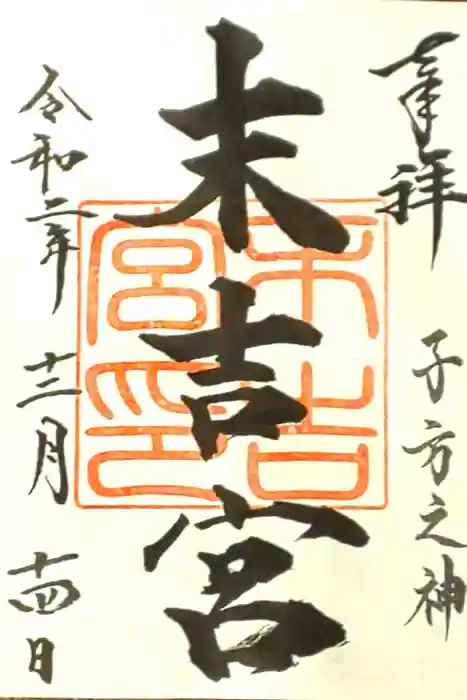 奉拝 子方之神
末吉宮
令和二年 十三月 十四日
末吉
宮印